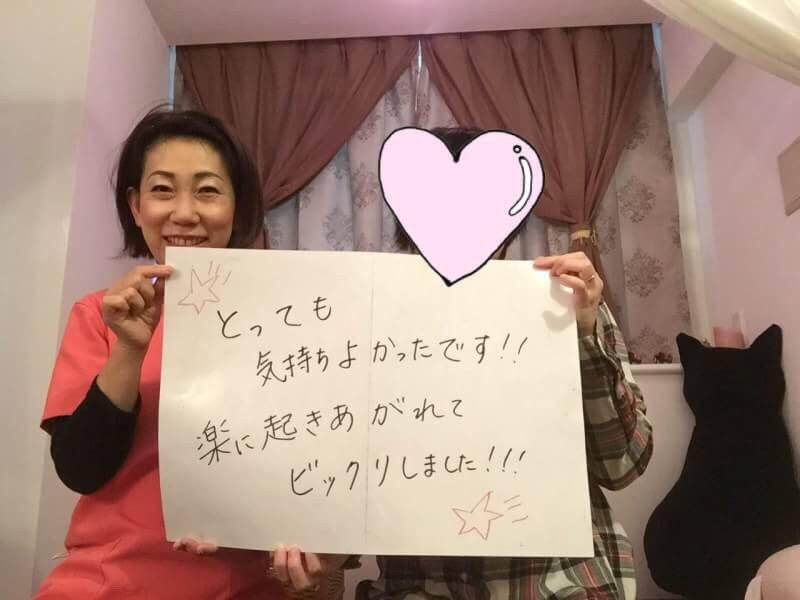 とっても
気持ちよかったです!!
楽に起きあがれて
ビックリしました!!!